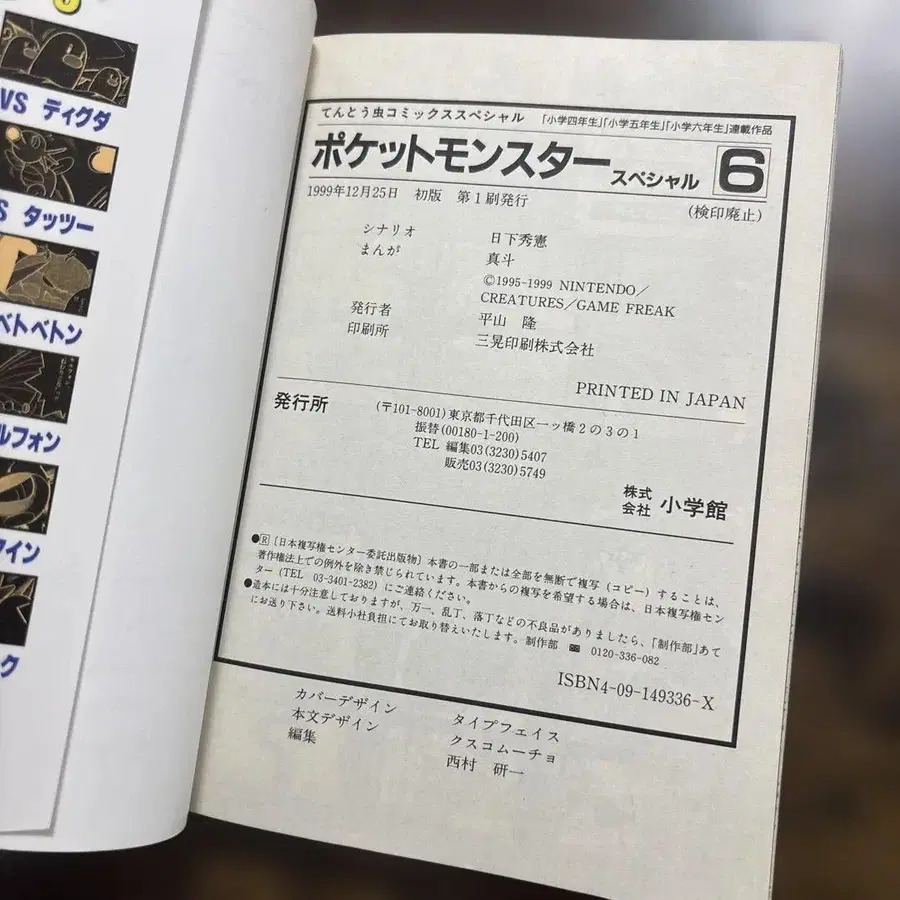 VS ディグダ
S タッツー
ベトベトン
ルフォン
イン
ク
てんとう虫コミックススペシャル 「小学四年生」「小学五年生」「小学六年生」連載作品
ポケットモンスター スペシャル 6
1999年12月25日 初版 第1刷発行 (検印廃止)
シナリオ 日下秀憲
まんが 真斗
©1995-1999 NINTENDO/
CREATURES/GAME FREAK
発行者 平山 隆
印刷所 三晃印刷株式会社
PRINTED IN JAPAN
発行所 (〒101-8001)東京都千代田区一ッ橋2の3の1
振替(00180-1-200)
TEL 編集03(3230)5407
販売03(3230)5749
株式会社 小学館
●R[日本複写権センター委託出版物]本書の一部または全部を無断で複写(コピー)することは、
著作権法上での例外を除き禁じられています。本書からの複写を希望する場合は、日本複写権セン
ター(TEL 03-3401-2382)にご連絡ください。
●造本には十分注意しておりますが、万一、乱丁、落丁などの不良品がありましたら、「制作部」あて
にお送り下さい。送料小社負担にてお取り替えいたします。制作部 0120-336-082
ISBN4-09-149336-X
カバーデザイン タイプフェイス
本文デザイン クスコムーチョ
編集 西村 研一